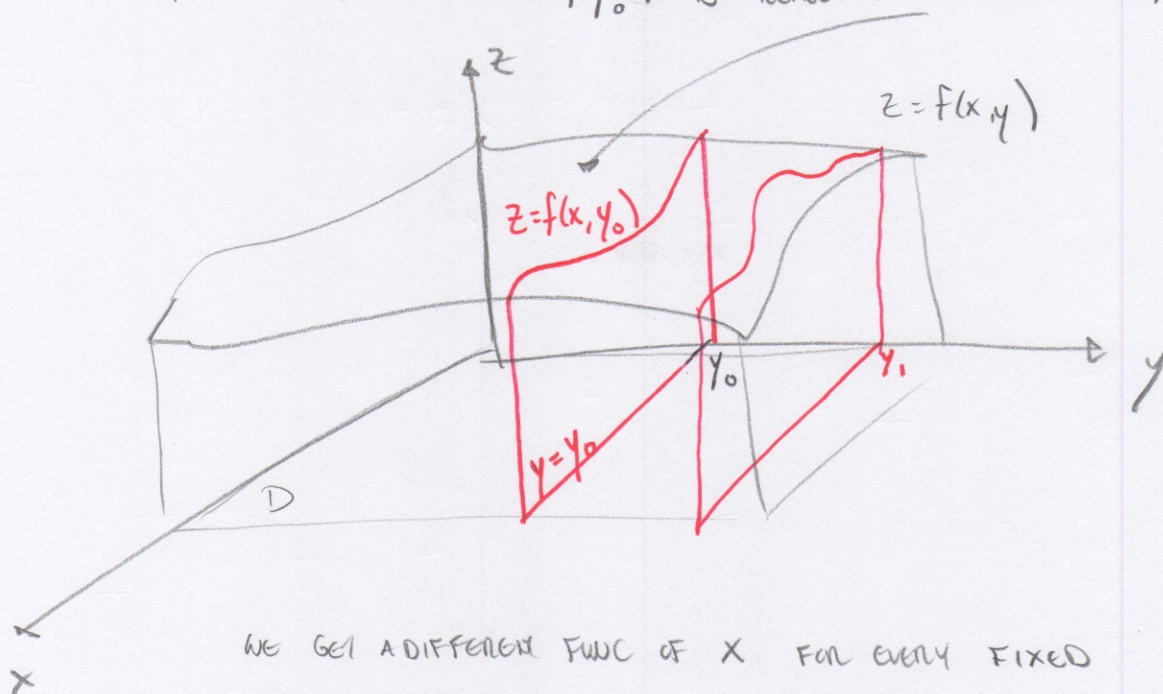 z
z=f(x,y)
z=f(x,y₀)
y₀
y₁
y
y=y₀
D
WE GET A DIFFERENT FUNC OF X FOR EVERY FIXED
x